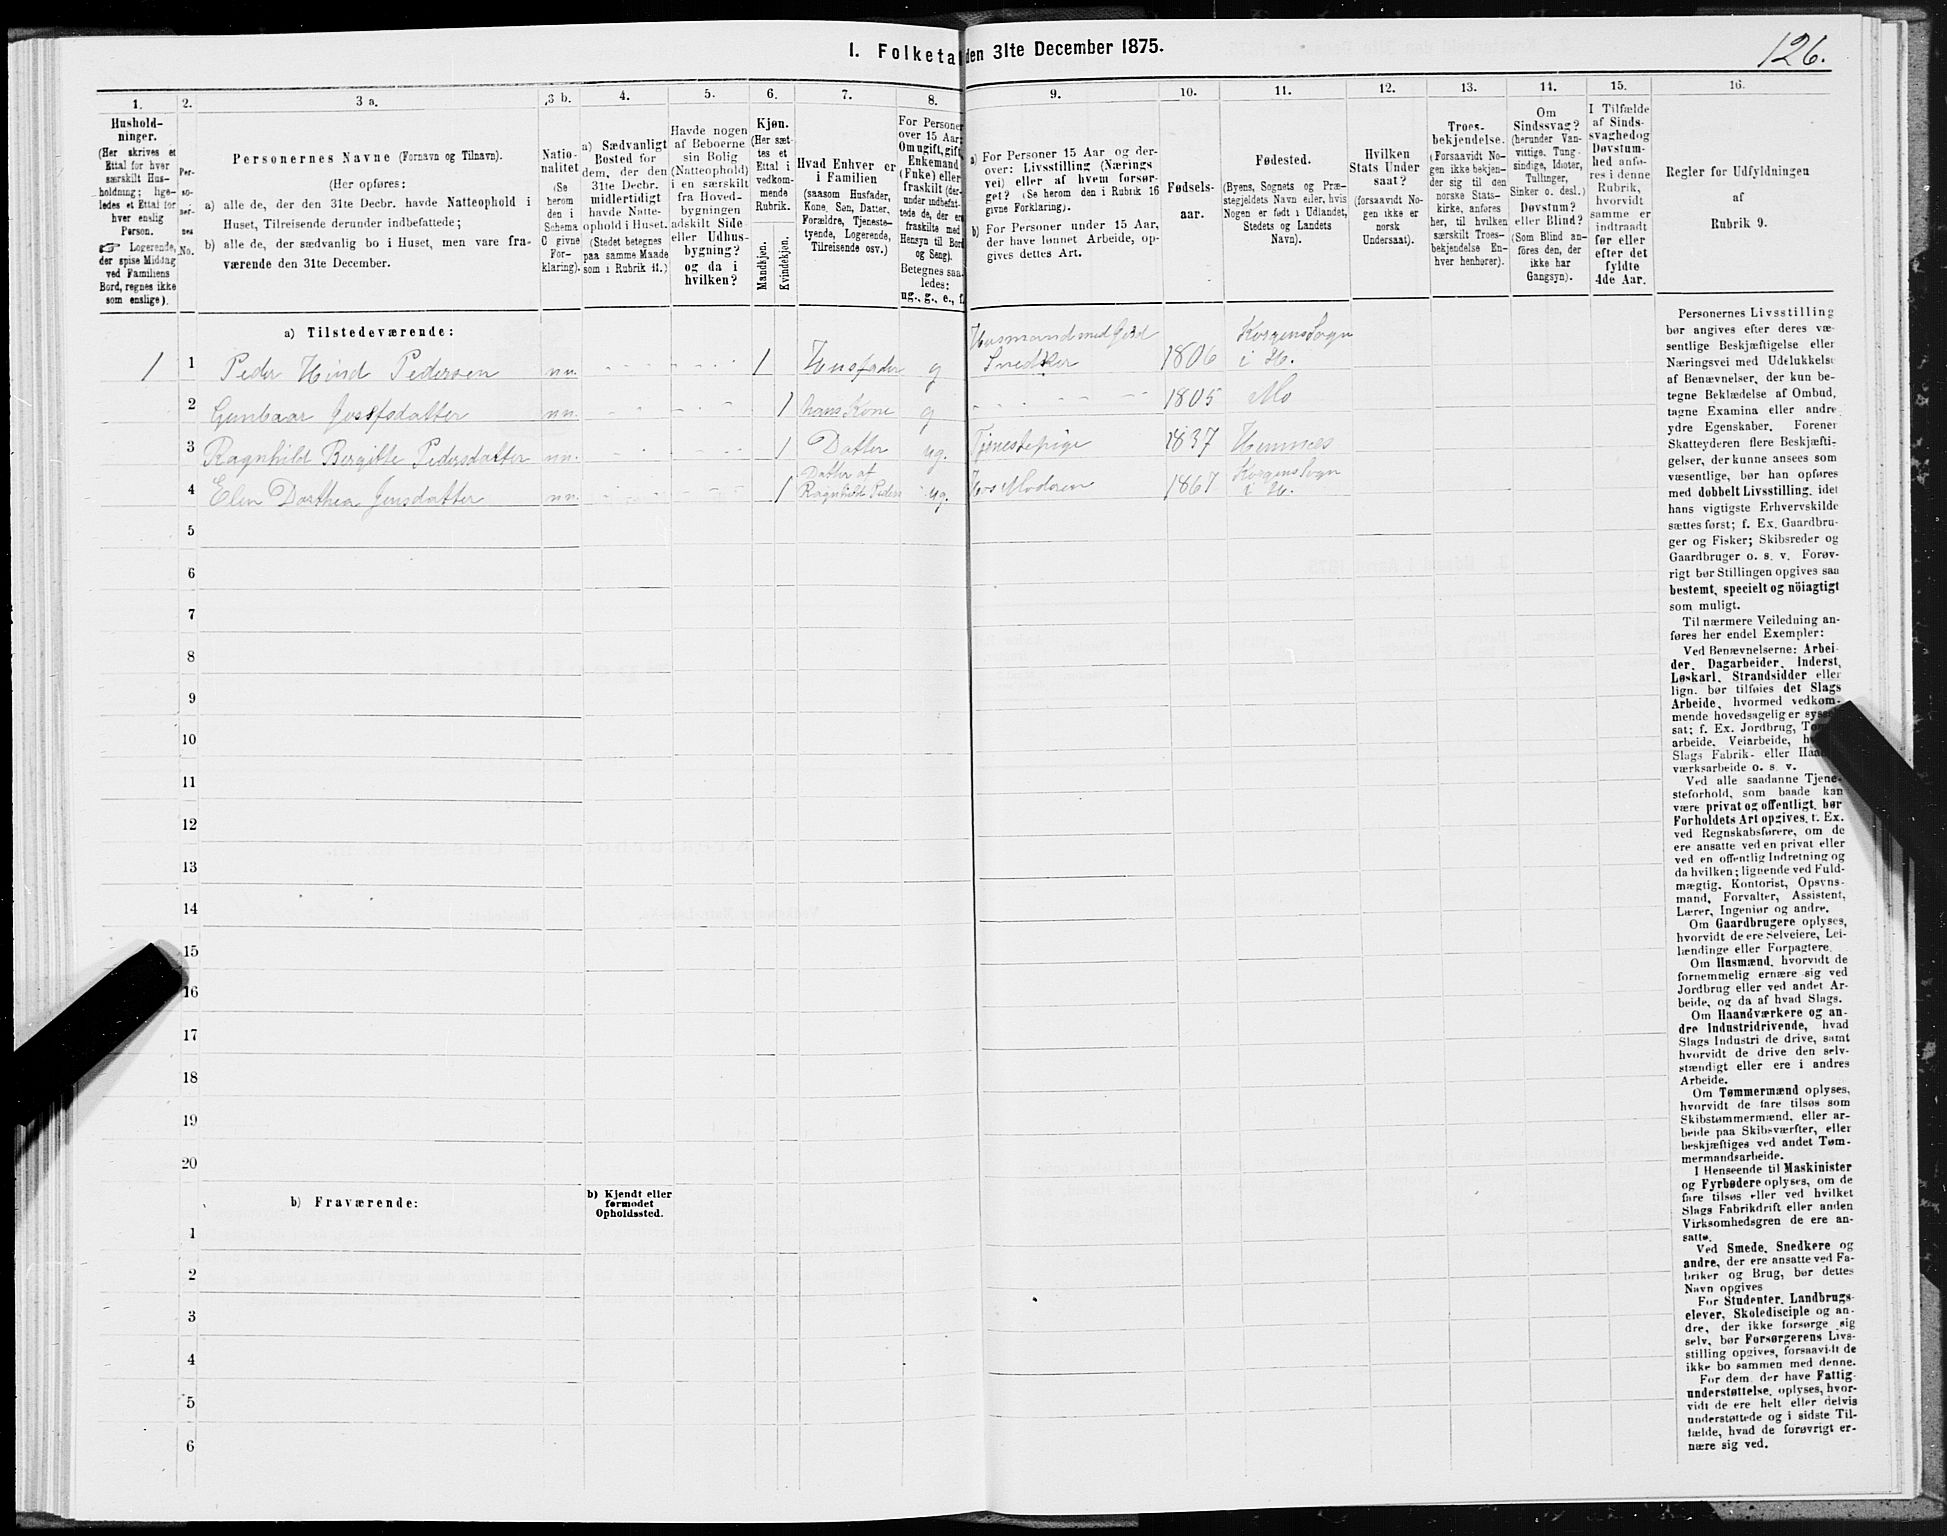 I. Folketa den 31te December 1875.
126.
1.
2.
3 a.
3 b.
4.
5.
6.
7.
8.
9.
10.
11.
12.
13.
14.
15.
16.
Hushold-
ninger.
(Her skrives et
Ettal for hver
særskilt Hus-
holdning; lige-
ledes et Ettal for
hver enslig
Person.
☞ Logerende,
der spise Middag
ved Familiens
Bord, regnes ikke
som enslige).
Per-
so-
ner-
nes
No.
Personernes Navne (Fornavn og Tilnavn).
(Her opføres:
a) alle de, der den 31te Decbr. havde Natteophold i
Huset, Tilreisende derunder indbefattede;
b) alle de, der sædvanlig bo i Huset, men vare fra-
værende den 31te December.
Natio-
nalitet
(Se
herom
den i
Schema
C givne
For-
klaring).
a) Sædvanligt
Bosted for
dem, der den
31te Decbr.
midlertidigt
havde Natte-
ophold i Huset.
(Stedet betegnes
paa samme Maade
som i Rubrik 11.)
Havde nogen
af Beboerne
sin Bolig
(Natteophold)
i en særskilt
fra Hoved-
bygningen
adskilt Side
eller Udhus-
bygning?
og da i
hvilken?
Kjøn.
(Her sæt-
tes et
Ettal i
vedkom-
mende
Rubrik.
Mandkjøn.
Kvindekjøn.
Hvad Enhver er
i Familien
(saasom Husfader,
Kone, Søn, Datter,
Forældre, Tjeneste-
tyende, Logerende,
Tilreisende osv.)
For Personer
over 15 Aar:
Om ugift, gift,
Enkemand
(Enke) eller
fraskilt (der-
under indbefat-
tede de, der ere
fraskilte med
Hensyn til Bord
og Seng).
Betegnes saa-
ledes:
ug., g., e., f.
a) For Personer 15 Aar og der-
over: Livsstilling (Nærings
vei) eller af hvem forsør-
get? (Se herom den i Rubrik 16
givne Forklaring).
b) For Personer under 15 Aar,
der have lønnet Arbeide, op-
gives dettes Art.
Fødsels-
aar.
Fødested.
(Byens, Sognets og Præ-
stegjeldets Navn eller, hvis
Nogen er født i Udlandet,
Stedets og Landets
Navn).
Hvilken
Stats Under
saat?
(forsaavidt No-
gen ikke er
norsk
Undersaat).
Troes-
bekjendelse.
(Forsaavidt No-
gen ikke bekjen-
der sig til den
norske Stats-
kirke, anføres
her, til hvilken
særskilt Troes-
bekjendelse En-
hver henhører).
Om
Sindssvag?
(herunder Van-
vittige, Tung-
sindige, Idioter,
Tullinger,
Sinker o. desl.)
Døvstum?
eller Blind?
(Som Blind an-
føres den, der
ikke har
Gangsyn).
I Tilfælde
af Sinds-
svaghed og
Døvstum-
hed anfø-
res i denne
Rubrik,
hvorvidt
samme er
indtraadt
før eller
efter det
fyldte
4de Aar.
Regler for Udfyldningen
af
Rubrik 9.
a) Tilstedeværende:
1 1 Peder Hind Pedersen nn. 1 Husfader g Husmand med Jord Snedker 1806 Korgens Sogn i H.
2 Gunbaar Josefsdatter nn. 1 hans Kone g 1805 Mo
3 Ragnhild Bergitte Pedersdatter nn. 1 Datter ug. Tjenestepige 1837 Hemnes
4 Elen Dorthea Jensdatter nn. 1 Datter af Ragnhild Peders ug. Hos Moderen 1867 Korgens Sogn i H.
5
6
7
8
9
10
11
12
13
14
15
16
17
18
19
20
b) Fraværende:
b) Kjendt eller
formodet
Opholdssted.
1
2
3
4
5
6
Personernes Livsstilling
bør angives efter deres væ-
sentlige Beskjæftigelse eller
Næringsvei med Udelukkelse
af Benævnelser, der kun be-
tegne Beklædelse af Ombud,
tagne Examina eller andre
ydre Egenskaber. Forener
Skatteyderen flere Beskjæfti-
gelser, der kunne ansees som
væsentlige, bør han opføres
med dobbelt Livsstilling, idet
hans vigtigste Erhvervskilde
sættes først; f. Ex. Gaardbru-
ger og Fisker; Skibsreder og
Gaardbruger o. s. v. Forøv-
rigt bør Stillingen opgives saa
bestemt, specielt og nöiagtigt
som muligt.
Til nærmere Veiledning an-
føres her endel Exempler:
Ved Benævnelserne: Arbei-
der, Dagarbeider, Inderst,
Løskarl, Strandsidder eller
lign. bør tilføies det Slags
Arbeide, hvormed vedkom-
mende hovedsagelig er syssel-
sat; f. Ex. Jordbrug, Tømmer-
arbeide, Veiarbeide, hvad
Slags Fabrik- eller Haand-
værksarbeide o. s. v.
Ved alle saadanne Tjene-
steforhold, som baade kan
være privat og offentligt, bør
Forholdets Art opgives, f. Ex.
ved Regnskabsførere, om de
ere ansatte ved en privat eller
ved en offentlig Indretning og
da hvilken; lignende ved Fuld-
mægtig, Kontorist, Opsyns-
mand, Forvalter, Assistent,
Lærer, Ingeniør og andre.
Om Gaardbrugere oplyses,
hvorvidt de ere Selveiere, Lei-
lændinge eller Forpagtere.
Om Husmænd, hvorvidt de
fornemmelig ernære sig ved
Jordbrug eller ved andet Ar-
beide, og da af hvad Slags.
Om Haandværkere og an-
dre Industridrivende, hvad
Slags Industri de drive, samt
hvorvidt de drive den selv-
stændigt eller ere i andres
Arbeide.
Om Tømmermænd oplyses,
hvorvidt de fare tilsøs som
Skibstømmermænd, eller ar-
beide paa Skibsværfter, eller
beskjæftiges ved andet Tøm-
mermandsarbeide.
I Henseende til Maskinister
og Fyrbødere oplyses, om de
fare tilsøs eller ved hvilket
Slags Fabrikdrift eller anden
Virksomhedsgren de ere an-
satte.
Ved Smede, Snedkere og
andre, der ere ansatte ved Fa-
briker og Brug, bør dettes
Navn opgives
For Studenter, Landbrugs-
elever, Skoledisciple og an-
dre, der ikke forsørge sig
selv, bør Forsørgerens Livs-
stilling opgives, forsaavidt de
ikke bo sammen med denne.
For dem, der have Fattig-
understøttelse, oplyses, hvor-
vidt de ere helt eller delvis
understøttede og i sidste Til-
fælde, hvad de forøvrigt er-
nære sig ved.